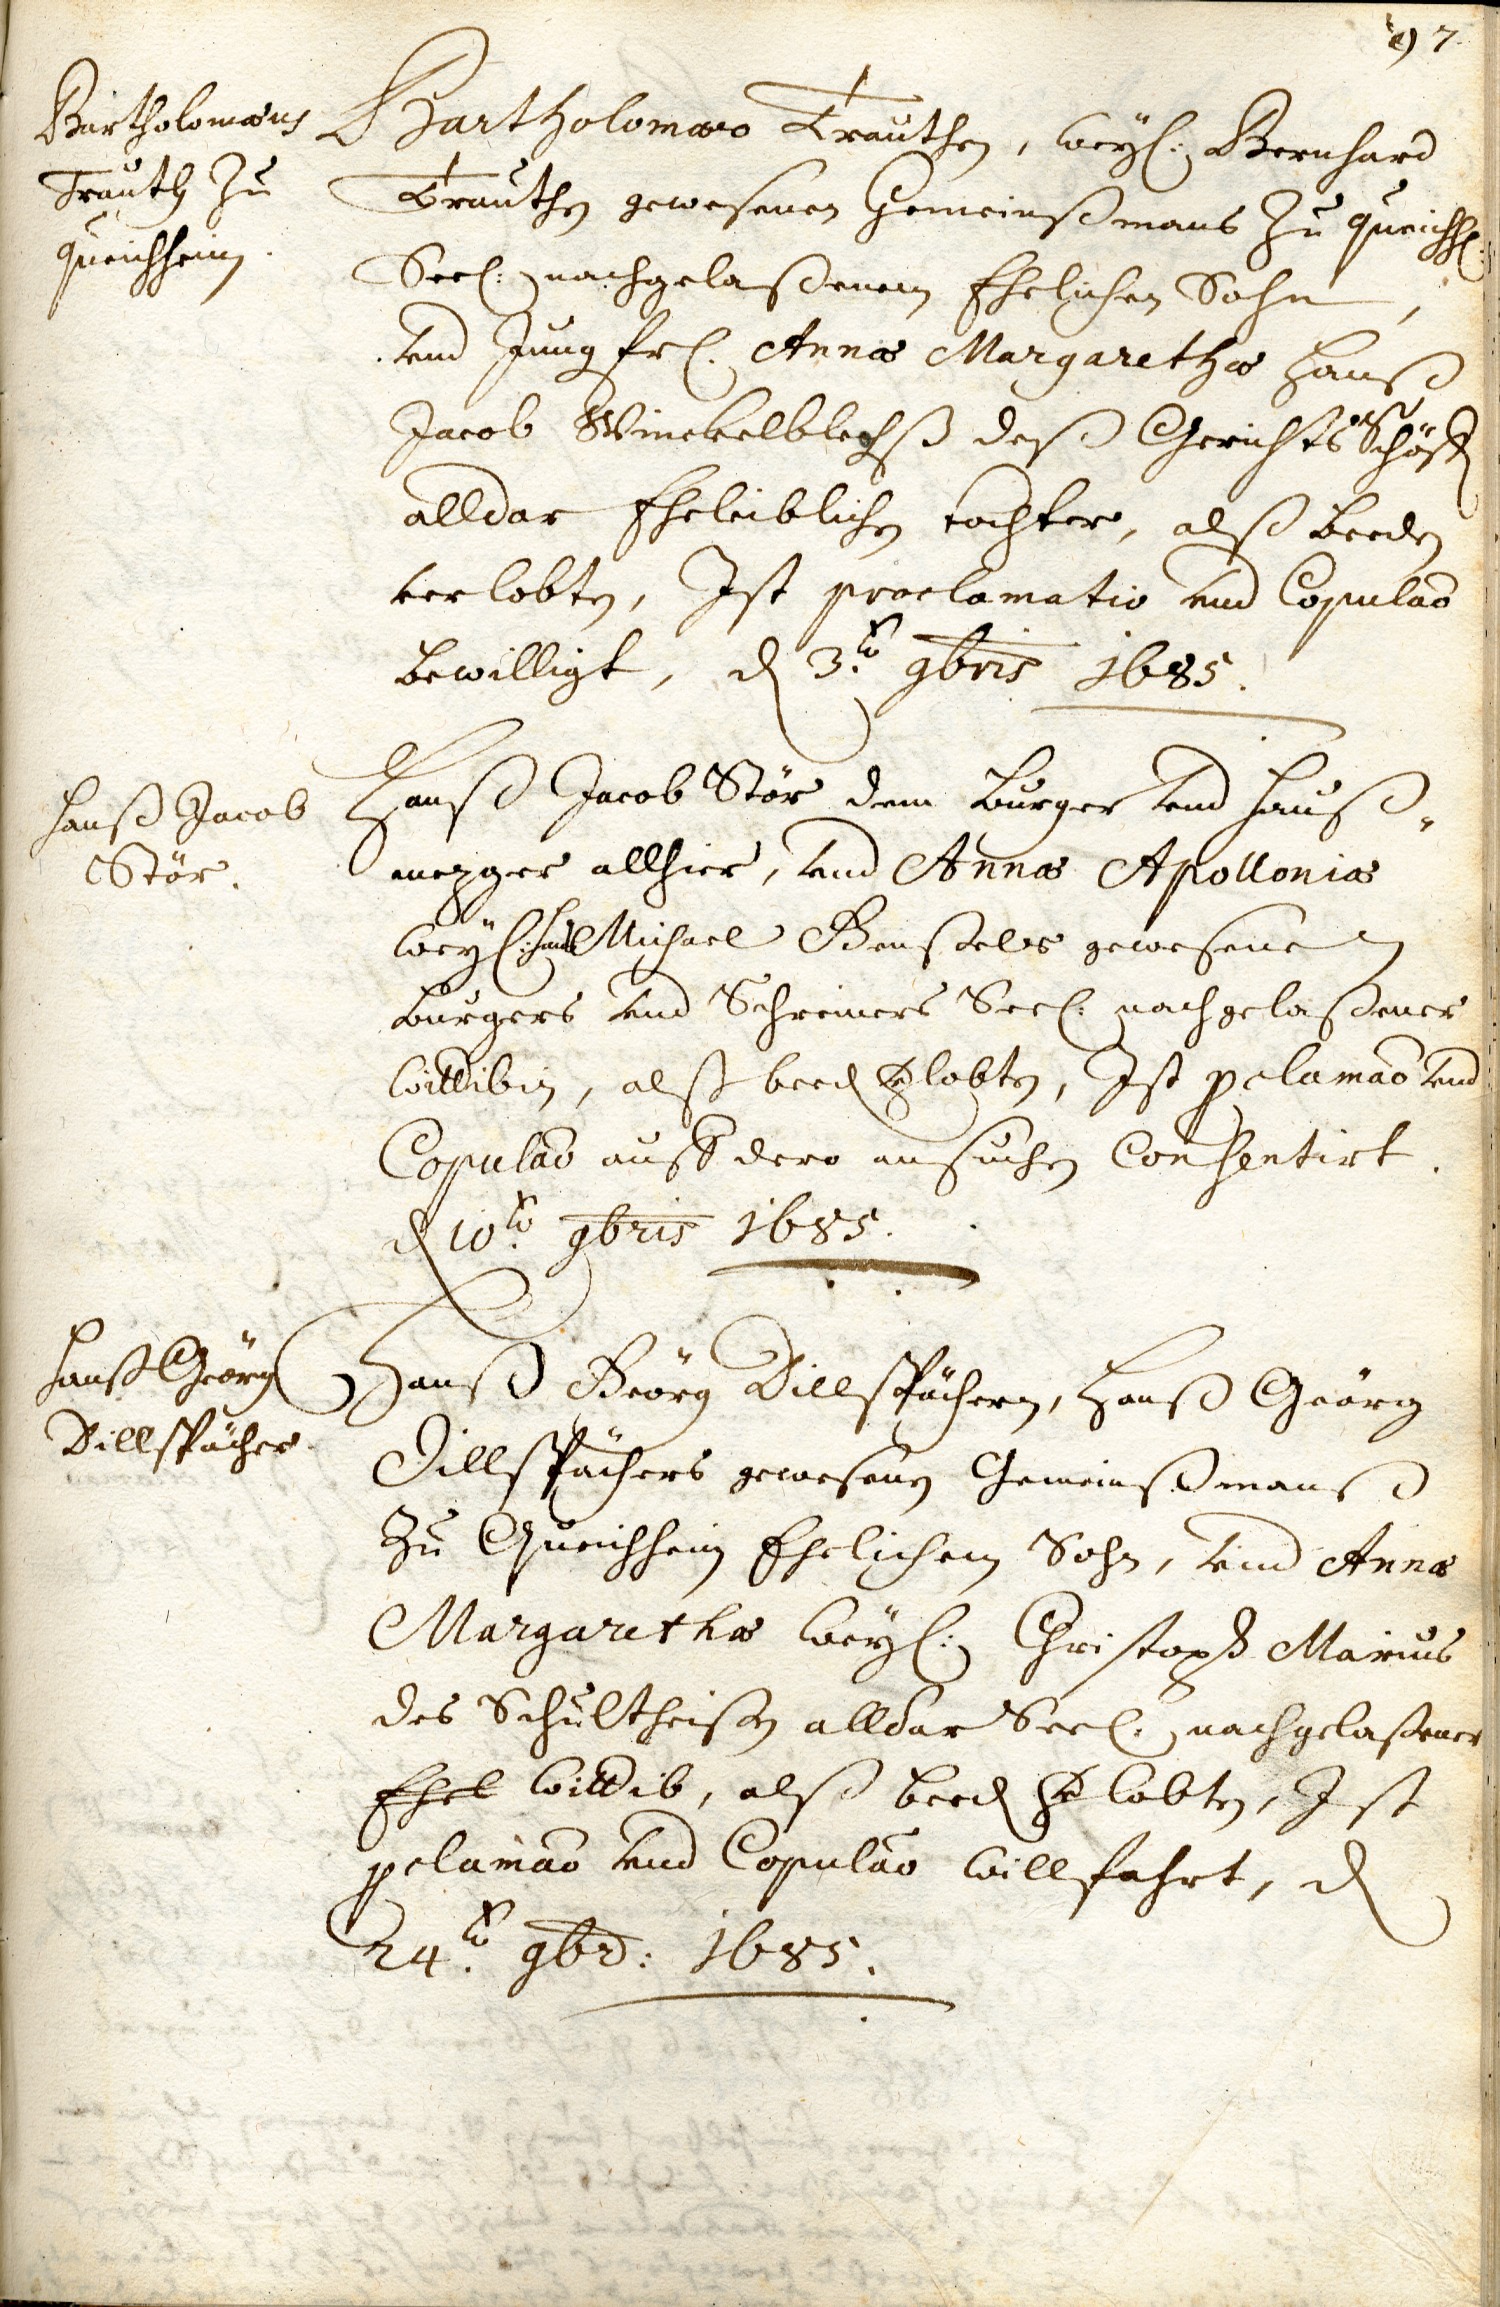 97.
Bartholomæus
Trauth zu
queichheim.
Bartholomæo Trauthen, weyl: Bernhard
Trauthen gewesenen Gemeinßmans zu queichh:
Seel: nachgelaßenem Ehelichen Sohn,
vnd Jungfrl. Annæ Margarethæ Hanß
Jacob Winckelblechß deß Gerichts Schöff
alldar Eheleiblichen tochter, alß beeden
verlobten, Ist proclamatio vnd Copulaõ
bewilligt, d 3.ten 9bris 1685.
Hanß Jacob
Stör.
Hanß Jacob Stör dem burger vnd hauß-
mezger allhier, vnd Annæ Apolloniæ
weyl: hanß Michael gewesenen
burgers vnd Schreiners Seel: nachgelaßener
wittibin, alß beed verlobten, Ist pclamaõ vnd
Copulaõ auff dero ansuchen Consentirt.
d 10.ten 9bris 1685.
Hanß Geörg
Dillspächer.
Hanß Geörg Dillspächern, Hanß Geörg
Dillspächers gewesenen Gemeinßmanß
zu Queichheim Ehelichem Sohn, vnd Annæ
Margarethæ weyl: Christoph Marius
des Schultheißen alldar Seel: nachgelaßener
Ehel wittib, alß beed verlobten, Ist
pclamaõ vnd Copulaõ willfahrt, d
24.ten 9br: 1685.